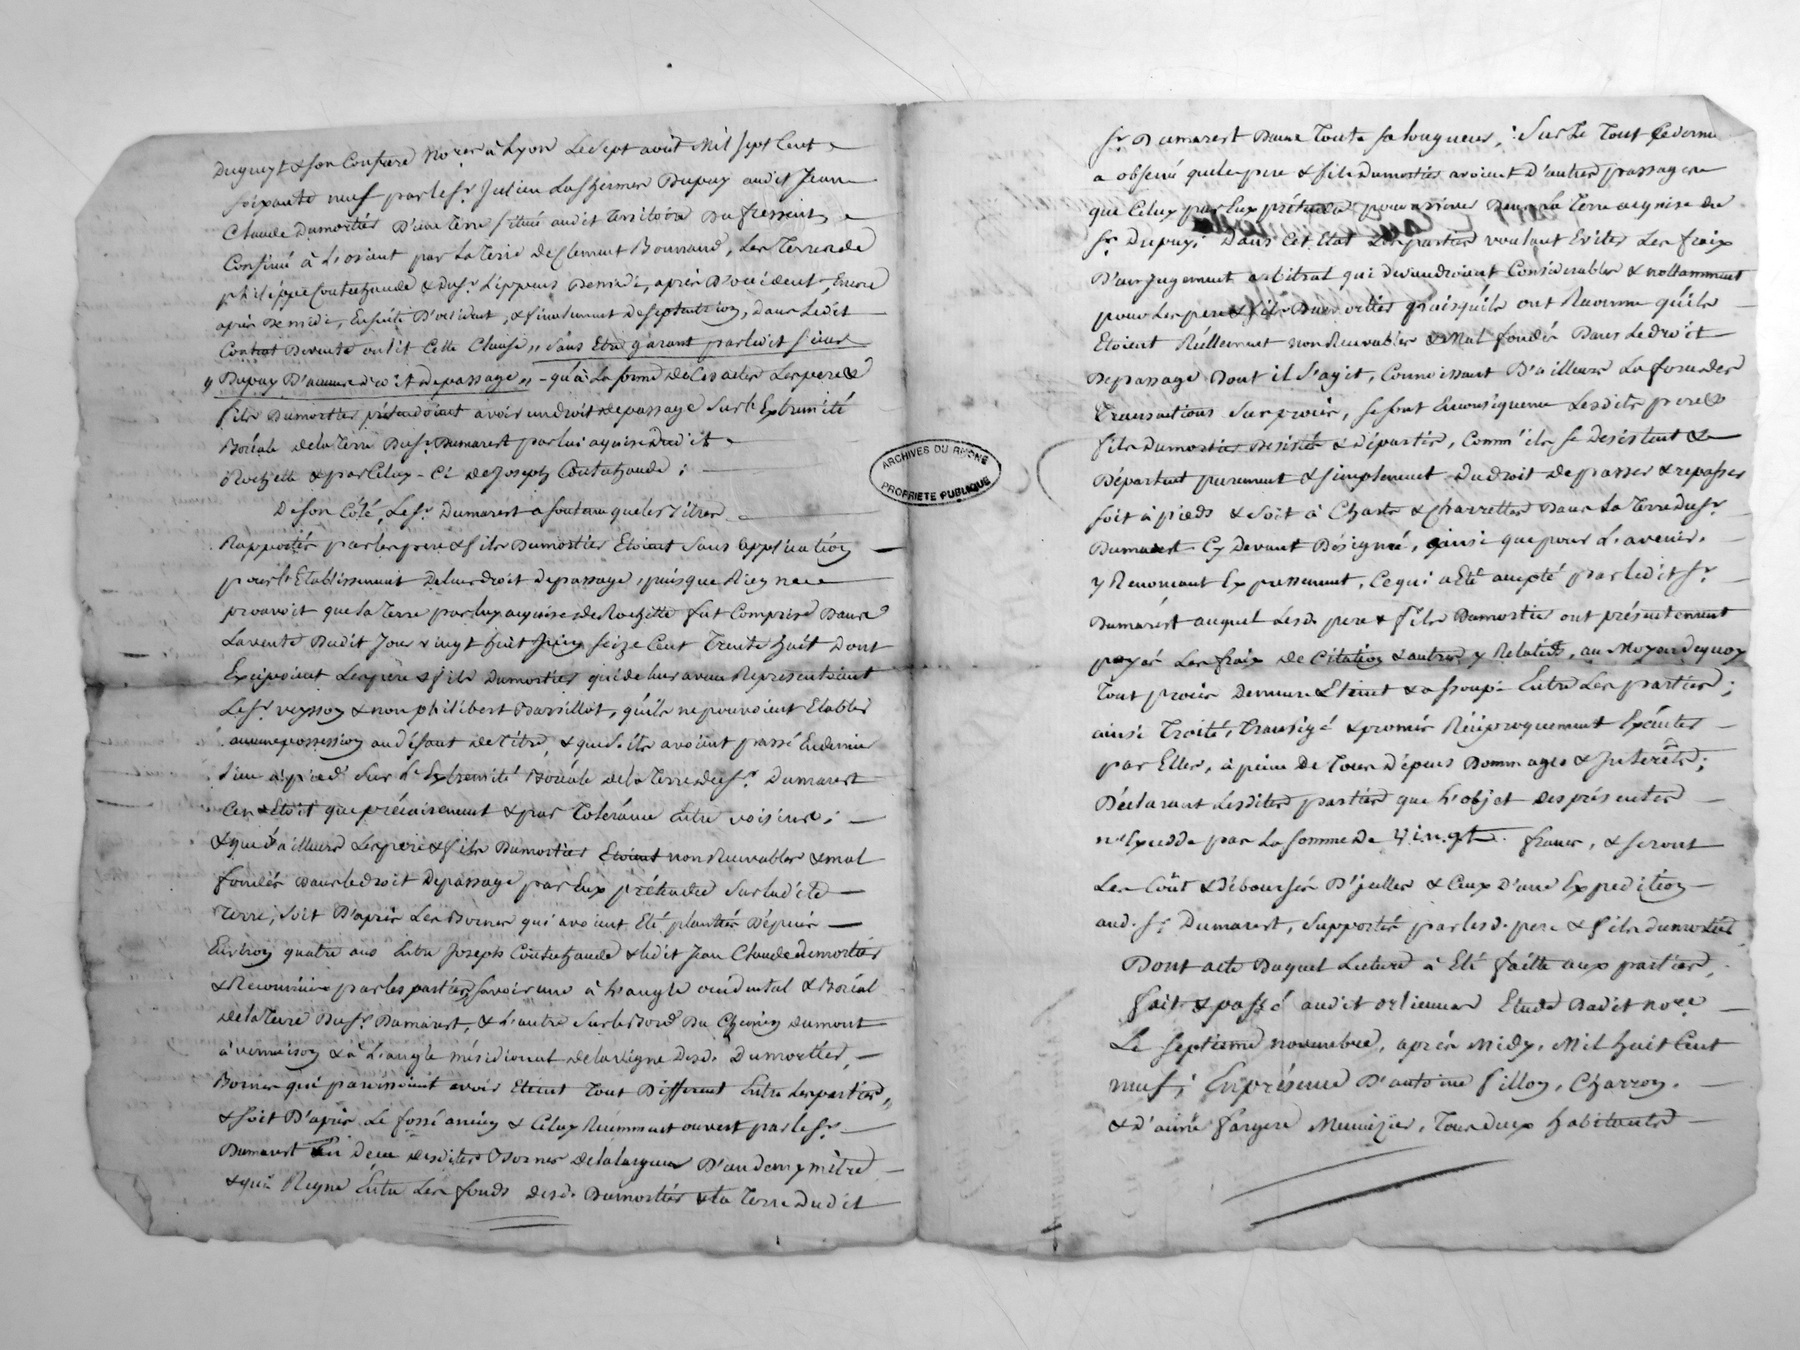 Dugueyt & son Confrere No.res à Lyon Le Sept août Mil Sept Cent
soixante neuf par le Sr. Julien Lashermes Dupuy audit Jean
Claude Dumortier D'une Terre située audit Territoire Du fressein,
Confiné à L'orient par La Terre de Clement Bonnand, Les Terres de
philippe Coutuhaude & Du Sr. Lippens De midi, après D'occident, Encore
après De midi, Ensuite D'occident, & finalement de septentrion, dans Ledit
Contrat De vente ou dit Cette Clause ,, sans Etre garant par ledit sieur
Dupuy D'aucun droit de passage ,, - qu'à La forme de Ces actes Les pere &
fils Dumortier prétendoient avoir un droit de passage sur l'Extremité
Boréale de la Terre Du Sr. Dumarest par lui acquise Dudit
Rochette & par Celuy-Ci de Joseph Coutuhaude;
De son Côté, Le Sr. Dumarest a soutenu que les Titres
Rapportés par les pere & fils Dumortier Etoient sans application
pour l'Etablissement De leur droit de passage, puisque Rien ne
prouvoit que la Terre par lux acquise de Rochette fut Comprise Dans
La vente Dudit Jour vingt huit Juin seize Cent Trente huit Dont
Excipoient Les père & fils Dumortier qui de leur aveu Representoient
Le Sr. veysson & non philibert Barrillot, qu'ils ne pouvoient Etablir
aucune possession au défaut de Titre, & que s'ils avoient passé En dernier
Lieu à pied sur l'Extremité Boréale de la Terre du Sr. Dumarest
Ce n'Etoit que précairement & par Tolérance Entre voisins;
& que d'ailleurs Les pere & fils Dumortier Etoient non Recevables & mal
fondés dans le droit de passage par Eux prétendu sur ladite
Terre; soit D'après Les Bornes qui avoient Eté plantées Depuis
Environ quatre ans Entre Joseph Coutuhaude & ledit Jean Claude dumortier
& Reconnües par les parties, savoir une à l'angle occidental & Boréal
de la Terre Du Sr. Dumarest, & l'autre sur le Bord Du Chemin Dumont
à vernaison & à L'angle méridional de la vigne desd. Dumortier,
Bornes qui paroissoient avoir Eteint Tout Different Entre les parties,
& soit D'après Le fossé ancien & Celuy Récemment ouvert par le Sr.
Dumarest En deca desdites Bornes de la largeur D'un demy mètre
& qui Regne Entre Les fonds desd. Dumortier & la Terre Dudit
Sr. Dumarest Dans Toute sa longueur; Sur Le Tout Ce dernier
a observé que les pere & fils Dumortier avoient D'autres passages
que Celuy par Eux prétendu pour arriver Dans La Terre acquise du
Sr. Dupuy; Dans Cet Etat Les parties voulant Eviter Les fraix
D'un Jugement arbitral qui deviendroient Considerables & nottamment
pour Les pere & fils puisqu'ils ont Reconnu qu'ils
Etoient Réellement non Recevables & Mal fondés Dans Le droit
De passage Dont il s'agit, Connoissant D'ailleurs La force des
Transactions Sur procès, se sont En conséquence Lesdits pere &
fils Dumortier Desistés & départis, Comm'ils se Desistent &
Départent purement & simplement Du droit de passer & repasser
soit à pieds & soit à Chars & Charrettes Dans La Terre du Sr.
Dumarest Cy Devant Désignée, ainsi que pour L'avenir,
y Renoncant Expressement, Ce qui a Eté accepté par ledit Sr.
Dumarest auquel Lesd. pere & fils Dumortier ont présentement
payé Les fraix de Citation & autres y Relatifs, au Moyen de quoy
Tout procès Demeure Eteint & assoupi Entre Les parties;
ainsi Traité, Transigé & promis Réciproquement Exécuter
par Elles, à peine De Tous Dépens Dommages & Interêts;
Déclarant Lesdites parties que L'objet des présentes
n'Excedde pas La somme de vingt francs, & seront
Les Coût & déboursés D'jcelles & Ceux D'une Expedition
aud. Sr. Dumarest, Supportés par lesd. pere & fils dumortier
Dont acte Duquel Lecture à Eté faitte aux parties,
fait & passé audit orlienas Etude Dudit no.re
Le Septieme novembre, après Midy, Mil huit Cent
neuf; En présence D'antoine fillon, Charron,
& d'aimé fargere Menuizier, Tous deux habitants
ARCHIVES DU RHÔNE
PROPRIETE PUBLIQUE